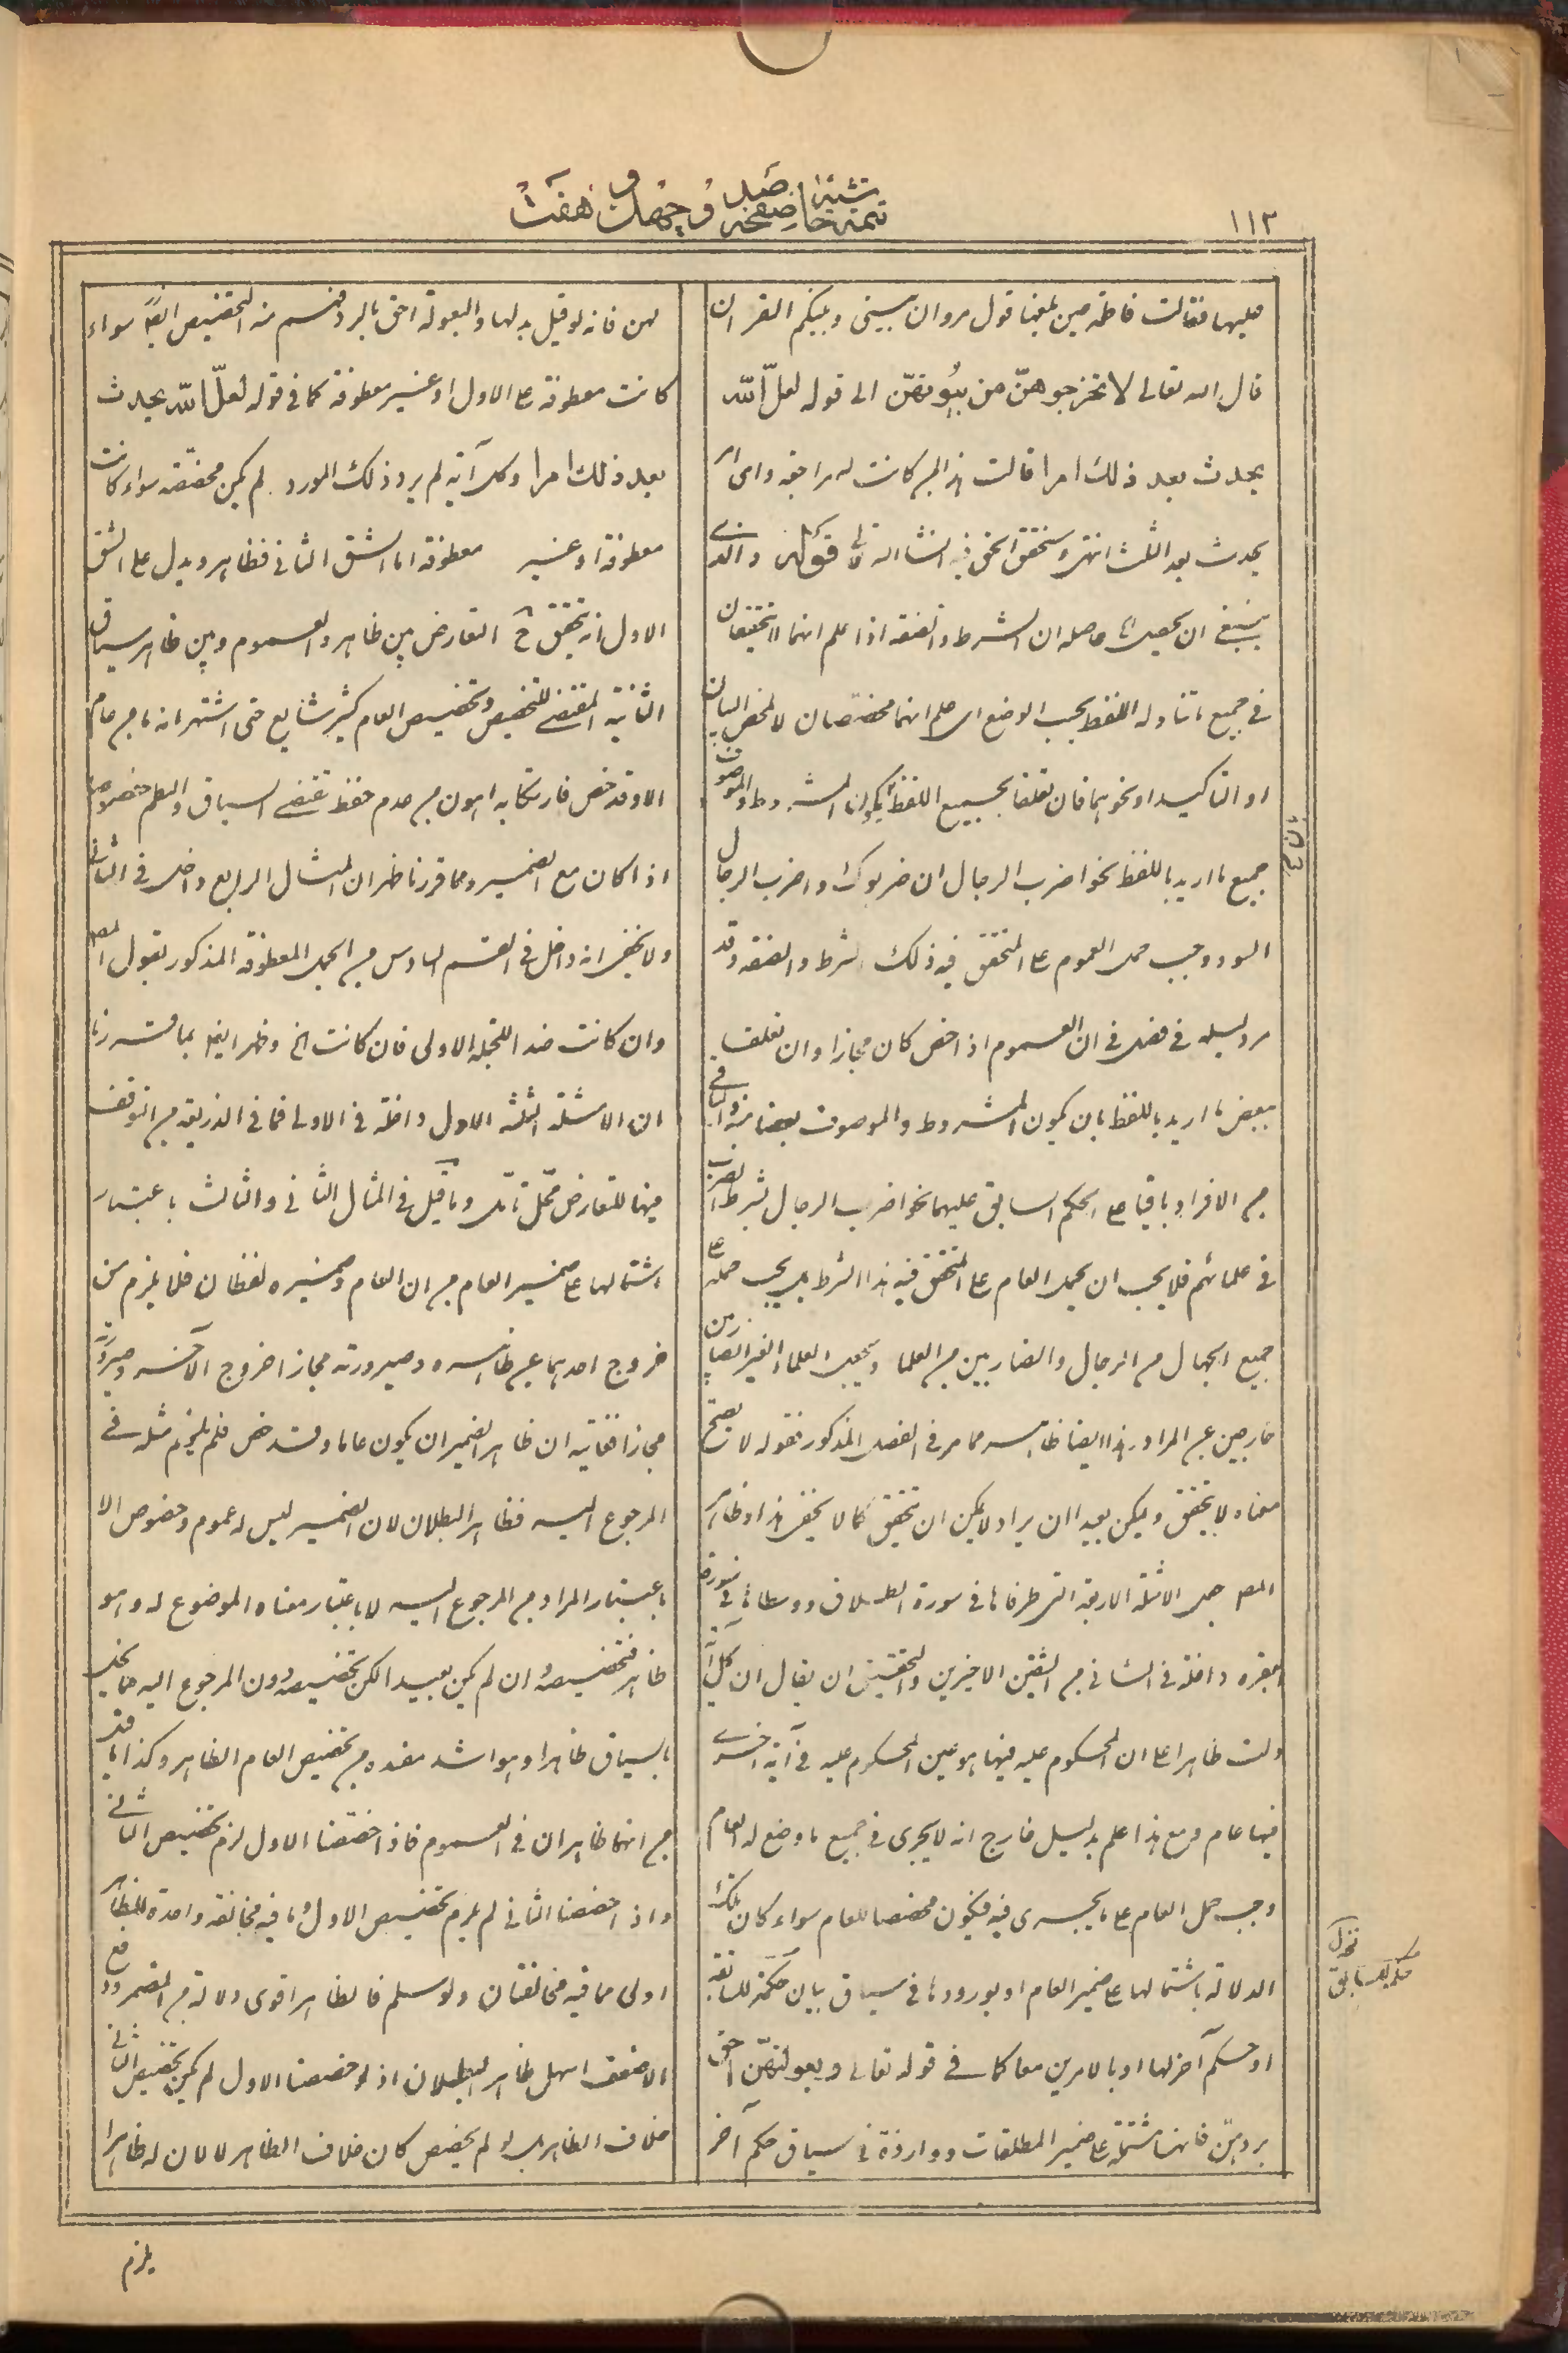 ١١٣
تتمة حاشية صفحه صد و چهل و هفت
عليها فقالت فاطمة حين بلغها قول مروان بيني وبينكم القران
قال الله تعالى لا تخرجوهنّ من بيوتهنّ الى قوله لعلّ الله
يحدث بعد ذلك امرا قالت هذا لمن كانت له مراجعة واى امر
يحدث بعد الثلث انتهى وسنحقق الحق فيه انشاء الله تعالى قوله والذى
ينبغى ان يحصل حاصله ان الشرط والصفة اذا علم انهما لا يتحققان
فى جميع ما تناوله اللفظ بحسب الوضع اى علم انهما مخصصان لا لمحض البيان
او التاكيد او نحوهما فان تعلقا بجميع اللفظ بكون المشروط والموصوف
جميع ما اريد باللفظ نحو اضرب الرجال ان ضربوك واضرب الرجال
السود وجب حمل العموم على المتحقق فيه ذلك الشرط والصفة وقد
مر دليله فى فصل فى ان العموم اذا خص كان مجازا وان تعلقا
ببعض ما اريد باللفظ بان يكون المشروط والموصوف بعضا منه والباقى
من الافراد باقيا على الحكم السابق عليهما نحو اضرب الرجال بشرط الضرب
فى علمائهم فلا يجب ان يحمل العام على المتحقق فيه هذا الشرط بل يجب حمله على
جميع الجهال من الرجال والضاربين من العلما ويجعل العلماء الغير الضاربين
خارجين عن المراد وهذا ايضا ظاهر مما مر فى الفصل المذكور فقوله لا يصح
معناه لا يتحقق ويمكن بعيدا ان يراد لا يمكن ان يتحقق كما لا يخفى هذا وظاهر
المصـ جعل الامثلة الاربعة التى طرفاها فى سورة الطلاق ووسطاها فى سورة
البقرة داخلة فى الثانى من الشقين الاخيرين والتحقيق ان يقال ان كل آية
دلت ظاهرا على ان المحكوم عليه فيها هو عين المحكوم عليه فى آية اخرى
فيها عام ومع هذا علم بدليل خارج انه لا يجرى فى جميع ما وضع له العام
وجب حمل العام على ما يجرى فيه فيكون مخصصا للعام سواء كان تلك
الدلالة باشتمالها على ضمير العام او بورودها فى سياق بيان حكمة للسابقة
او حكم آخر لها او بالامرين معا كما فى قوله تعالى وبعولتهنّ احق
بردهنّ فانها مشتملة على ضمير المطلقات وواردة فى سياق حكم آخر
لهن فانه لو قيل بدلها والبعولة احق بالرد فهم منه التخصيص ايضا سواء
كانت معطوفة على الاول او غير معطوفة كما فى قوله لعلّ الله يحدث
بعد ذلك امرا وكل آية لم يرد ذلك المورد لم يكن مخصصة سواء كانت
معطوفة او غير معطوفة اما الشق الثانى فظاهر ويدل على الشق
الاول انه يتحقق ح التعارض بين ظاهر العموم وبين ظاهر سياق
الثانية المقتضى للتخصيص وتخصيص العام كثير شايع حتى اشتهر انه ما من عام
الا وقد خص فارتكابه اهون من عدم حفظ مقتضى السياق والنظم خصوصا
اذا كان مع الضمير ومما قررنا ظهر ان المثال الرابع داخل فى الثانى
ولا يخفى انه داخل فى القسم السادس من الجمل المعطوفة المذكور بقول المصـ
وان كانت ضدا للجملة الاولى فان كانت الخ وظهر ايضا بما قررنا
ان الامثلة الثلثة الاول داخلة فى الاولى فما فى الذريعة من التوقف
فيها للتعارض محل تامل وما قيل فى المثال الثانى والثالث باعتبار
اشتمالها على ضمير العام من ان العام وضميره لفظان فلا يلزم من
خروج احدهما عن ظاهره وصيرورته مجازا خروج الآخر وصيرورته
مجازا فغايته ان ظاهر الضمير ان يكون عاما وقد خص فلم يلزم مثله فى
المرجوع اليه فظاهر البطلان لان الضمير ليس له عموم وخصوص الا
باعتبار المراد من المرجوع اليه لا باعتبار معناه الموضوع له وهو
ظاهر فتخصيصه وان لم يكن بعيدا لكن تخصيصه دون المرجوع اليه مما يخل
بالسياق ظاهرا وهو اشد مفسدة من تخصيص العام الظاهر وكذا ما قيل
من انهما ظاهران فى العموم فاذا خصصنا الاول لزم تخصيص الثانى
واذا خصصنا الثانى لم يلزم تخصيص الاول وما فيه مخالفة واحدة للظاهر
اولى مما فيه مخالفتان ولو سلم فالظاهر اقوى دلالة من المضمر ودفع
الاضعف اسهل ظاهر البطلان اذ لو خصصنا الاول لم يكن تخصيص الثانى
خلاف الظاهر بل لو لم يخصص كان خلاف الظاهر لا لان له ظاهرا
يلزم